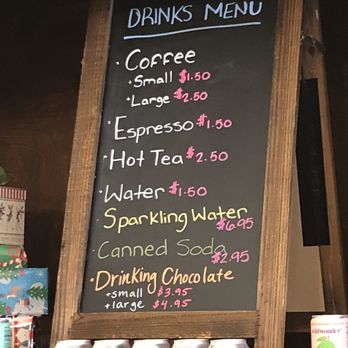 DRINKS MENU
· Coffee
• Small $1.50
• Large $2.50
· Espresso $1.50
· Hot Tea $2.50
· Water $1.50
· Sparkling Water $6.95
· Canned Soda $2.95
· Drinking Chocolate
+ small $3.95
+ large $4.95